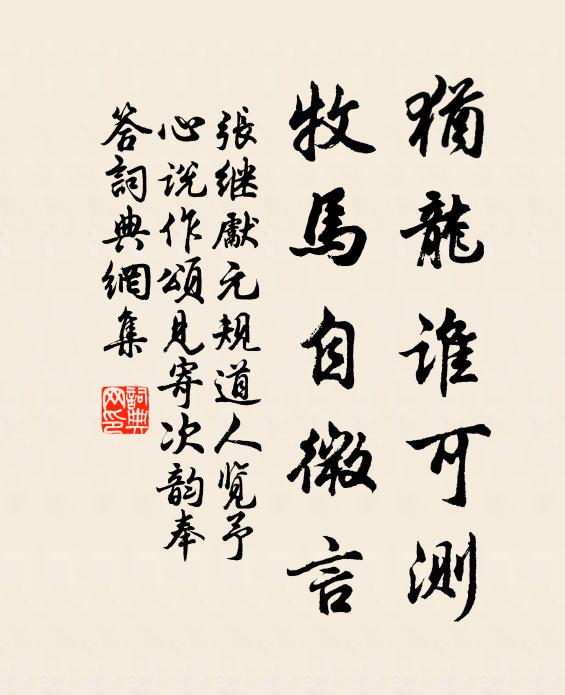 猶龍誰可測
牧馬自微言
張继獻元規道人览予
心说作頌見寄次韵奉
答詞典網集
詞典
网印